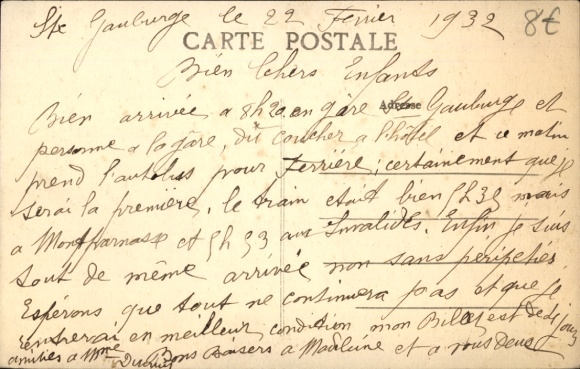 Ste Gauburge le 22 Fevrier 1932
8€
CARTE POSTALE
Bien Chers Enfants
Adresse
Bien arrivée a 8h20 en gare Ste Gauburge et
personne a la gare, dû coucher a l'hôtel et ce matin
prend l'autobus pour Ferrière; certainement que je
serai la première, le train etait bien 5h35 mais
a Montparnasse et 5h53 aux Invalides. Enfin je suis
tout de même arrivée non sans péripéties
Espérons que tout ne continuera pas et que je
rentrerai en meilleur condition mon Billet est de dix jours
amitiés a Mme Bons Baisers a Madleine et a vous deux